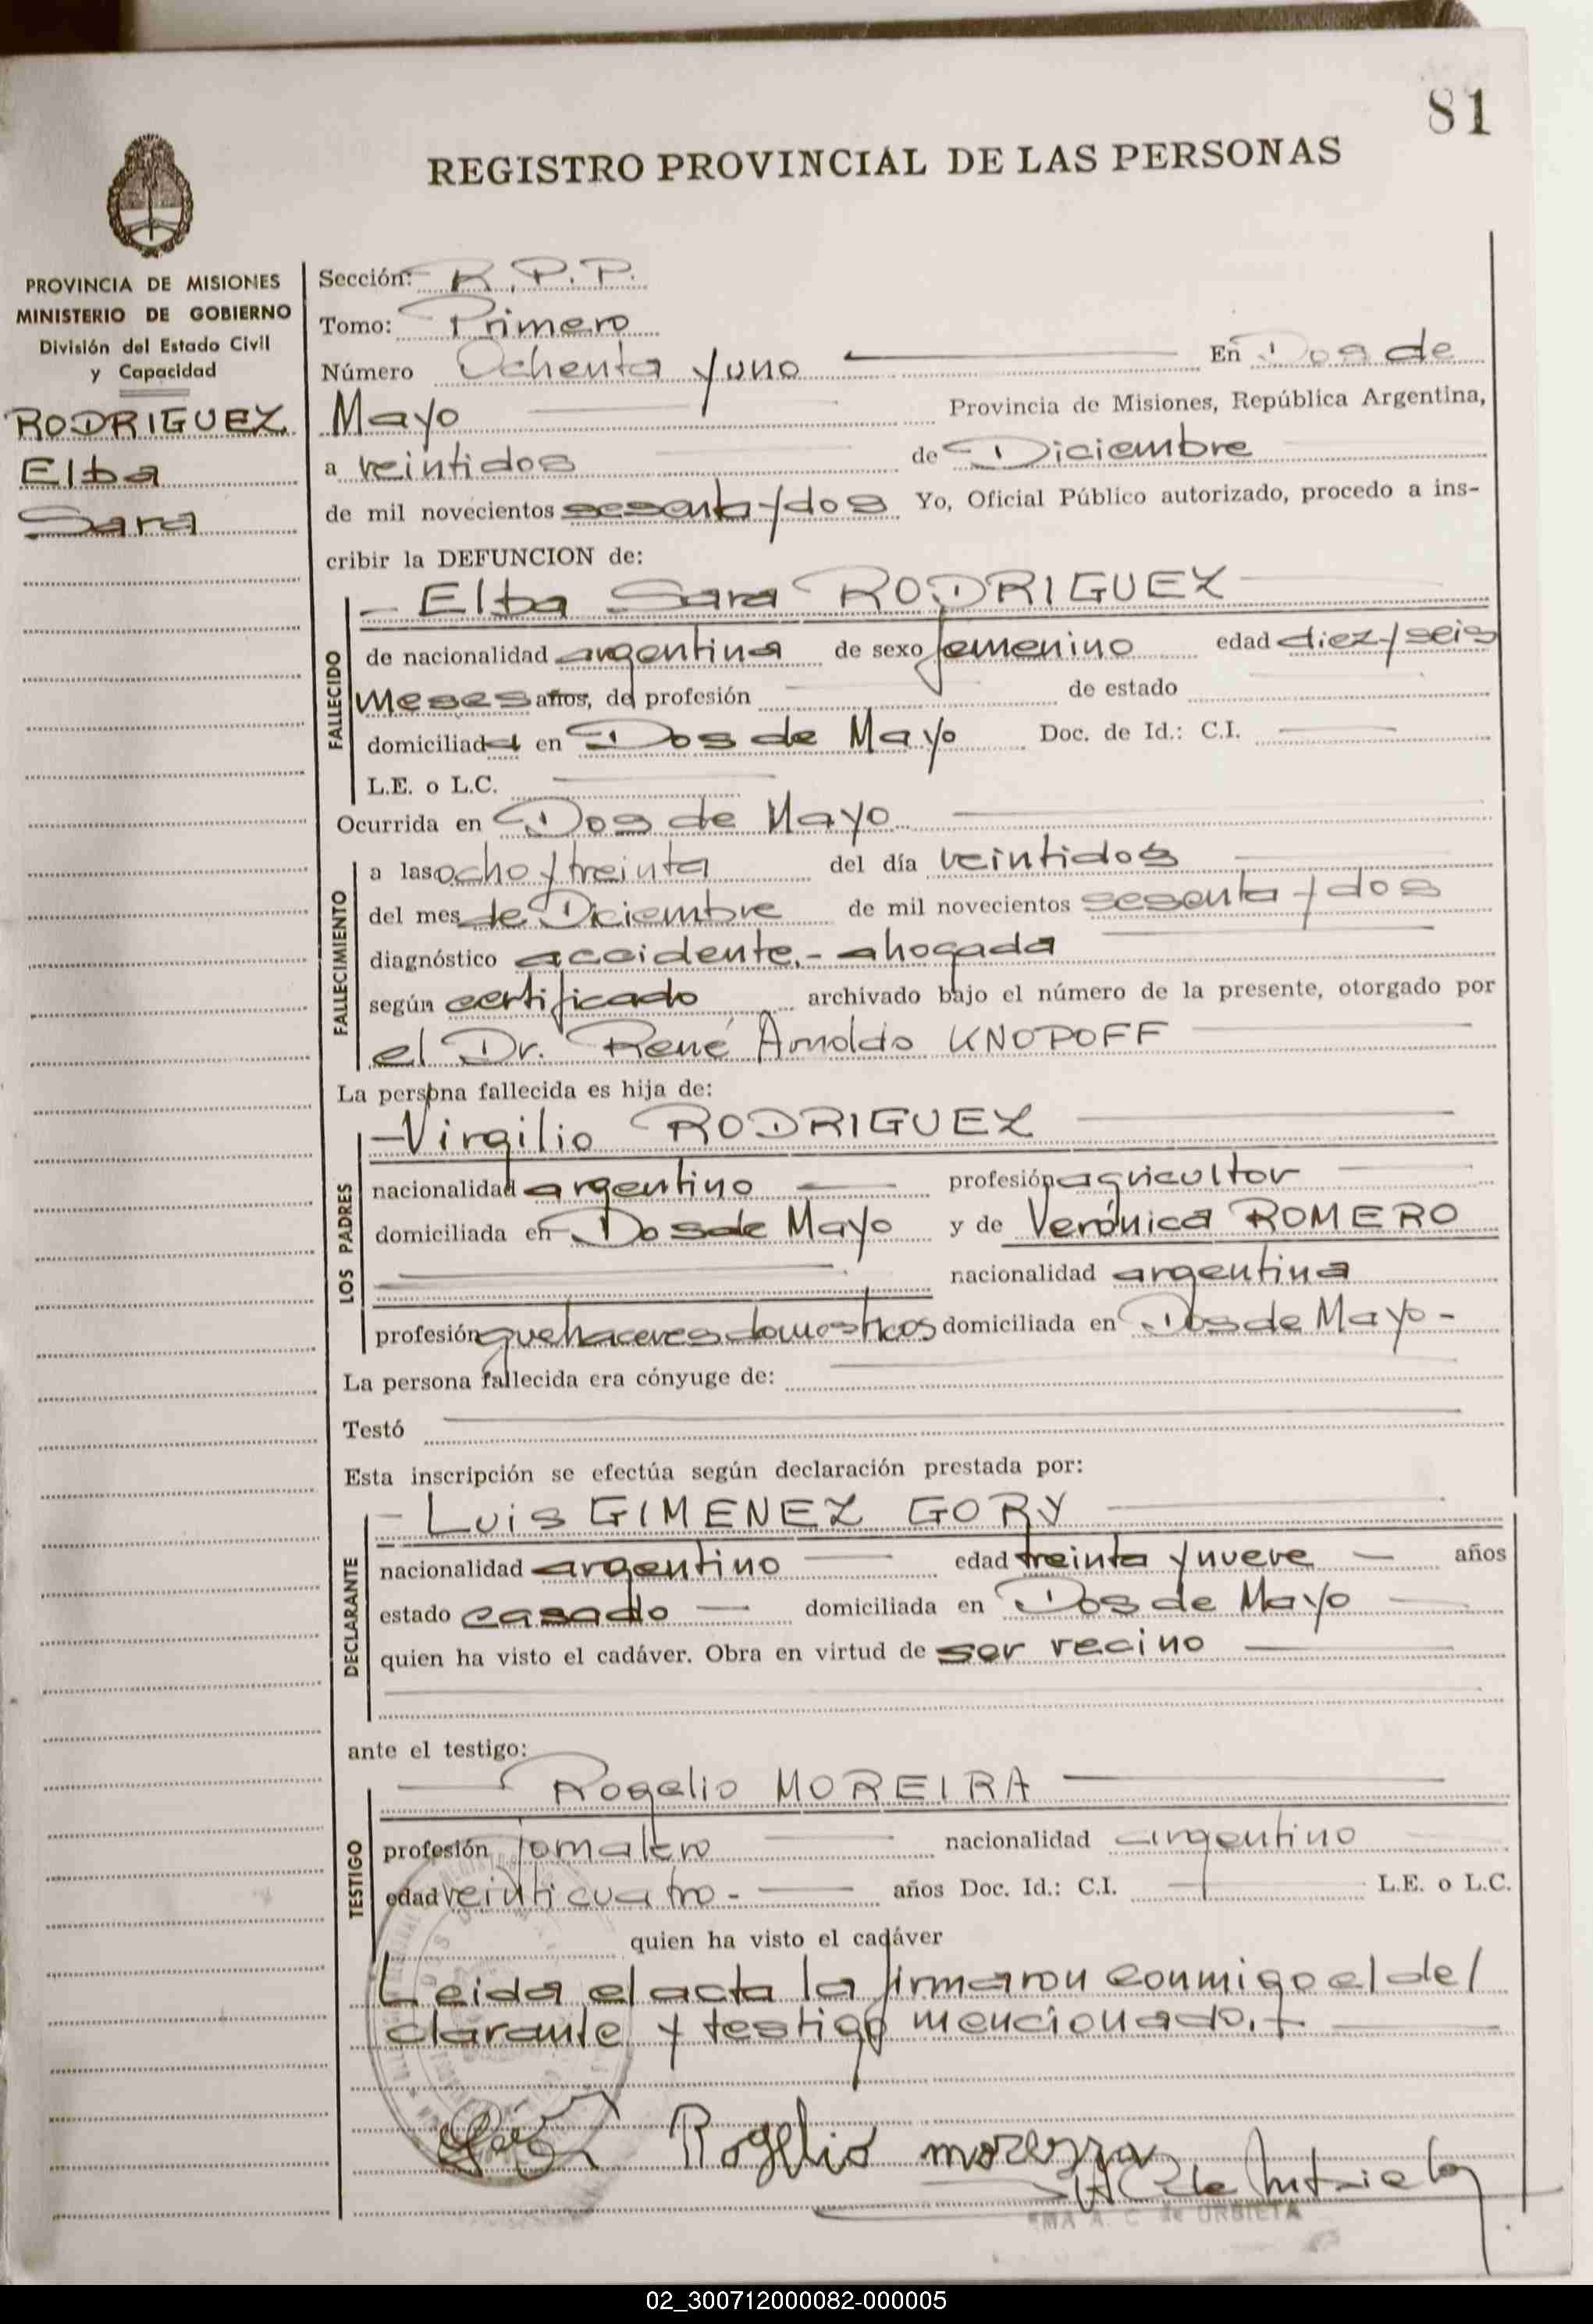 81
REGISTRO PROVINCIAL DE LAS PERSONAS
PROVINCIA DE MISIONES
MINISTERIO DE GOBIERNO
División del Estado Civil
y Capacidad
RODRIGUEZ
Elba
Sara
Sección: R.P.P.
Tomo: Primero
Número Ochenta y uno En Dos de
Mayo Provincia de Misiones, República Argentina,
a veintidos de Diciembre
de mil novecientos sesenta y dos Yo, Oficial Público autorizado, procedo a ins-
cribir la DEFUNCION de:
FALLECIDO
- Elba Sara RODRIGUEZ
de nacionalidad argentina de sexo femenino edad diez y seis
meses años, de profesión de estado
domiciliada en Dos de Mayo Doc. de Id.: C.I.
L.E. o L.C.
Ocurrida en Dos de Mayo
FALLECIMIENTO
a las ocho y treinta del día veintidos
del mes de Diciembre de mil novecientos sesenta y dos
diagnóstico accidente.- ahogada
según certificado archivado bajo el número de la presente, otorgado por
el Dr. René Arnoldo KNOPOFF
La persona fallecida es hija de:
LOS PADRES
-Virgilio RODRIGUEZ
nacionalidad argentino profesión agricultor
domiciliada en Dos de Mayo y de Verónica ROMERO
nacionalidad argentina
profesión quehaceres domesticos domiciliada en Dos de Mayo -
La persona fallecida era cónyuge de:
Testó
Esta inscripción se efectúa según declaración prestada por:
DECLARANTE
- Luis GIMENEZ GORY
nacionalidad argentino edad treinta y nueve años
estado casado domiciliada en Dos de Mayo
quien ha visto el cadáver. Obra en virtud de ser vecino
ante el testigo:
TESTIGO
Rogelio MOREIRA
profesión jornalero nacionalidad argentino
edad veinticuatro - años Doc. Id.: C.I. L.E. o L.C.
quien ha visto el cadáver
Leida el acta la firmaron conmigo el de
clarante y testigo mencionado.
Rogelio moreira
A. C. de URBIETA
02_300712000082-000005